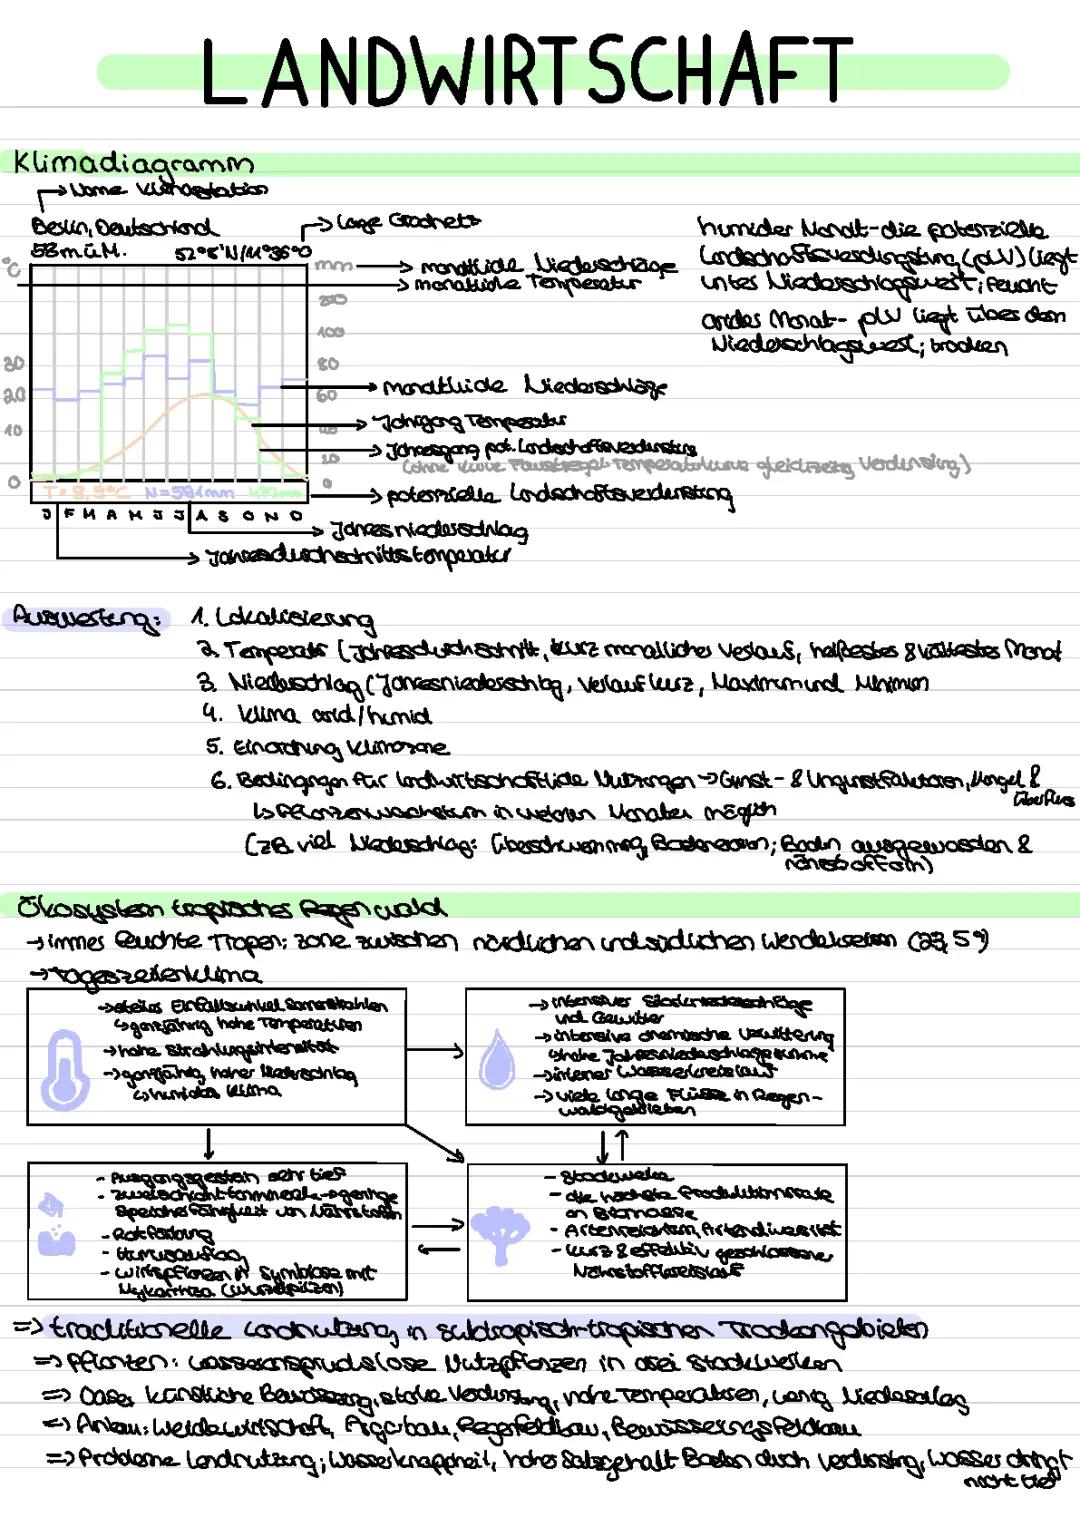 LANDWIRTSCHAFT
Klimadiagramm
→ Name Klimastation
Berlin, Deutschland
→ Lage Gradnetz
58 m ü.M.
°C
mm
→ monatliche Niederschläge
→ monatliche Temperatur
humider Monat - die potenzielle
Landschaftsverdunstung (pLV) liegt
unter Niederschlagswert; feucht
arider Monat - pLV liegt über dem
Niederschlagswert; trocken
100
30
80
20
60
→ monatliche Niederschläge
10
→ Jahrgang Temperatur
→ Jahresgang pot. Landschaftsverdunstung
20
0
0
T = 8,9°C N = 581mm
→ potenzielle Landschaftsverdunstung
J F M A M J J A S O N D
→ Jahresniederschlag
→ Jahresdurchschnittstemperatur
Auswertung: 1. Lokalisierung
2. Temperatur (Jahresdurchschnitt, kurz monatlicher Verlauf, heißestes & kältestes Monat
3. Niederschlag (Jahresniederschlag, Verlauf kurz, Maximum und Minimum
4. Klima arid/humid
5. Einordnung Klimazone
6. Bedingungen für landwirtschaftliche Nutzungen → Gunst- & Ungunstfaktoren, Mangel &
Überfluss
↳ Pflanzenwachstum in welchen Monaten möglich
(z.B. viel Niederschlag: Überschwemmung, Bodenerosion; Boden ausgewaschen &
nährstoffarm)
Ökosystem tropischer Regenwald
→ immer feuchte Tropen: Zone zwischen nördlichen und südlichen Wendekreisen (23,5°)
→ Tageszeitenklima
→ steiler Einfallswinkel Sonnenstrahlen
↳ ganzjährig hohe Temperaturen
→ hohe Strahlungsintensität
→ ganzjährig hoher Niederschlag
↳ humides Klima
→ intensiver Starkniederschläge
und Gewitter
→ intensive chemische Verwitterung
↳ hohe Jahresniederschlagssumme
→ interner Wasserkreislauf
→ viele lange Flüsse in Regen-
waldgebieten
- Ausgangsgestein sehr tief
- Zweischichttonminerale → geringe
Speicherfähigkeit von Nährstoffen
- Rotfärbung
- Humusauflag
- Wirtspflanzen in Symbiose mit
Mykorrhiza (Wurzelpilzen)
- Stockwerke
- die höchste Produktionsrate
an Biomasse
- Artenreichtum, Artendiversität
- kurz & effektiv geschlossene
Nährstoffkreislauf
=> traditionelle Landnutzung in subtropisch-tropischen Trockengebieten
=> Pflanzen: wasseranspruchslose Nutzpflanzen in drei Stockwerken
=> Oase: künstliche Bewässerung, starke Verdunstung, hohe Temperaturen, wenig Niederschlag
=> Anbau: Weidewirtschaft, Regenfeldbau, Bewässerungsfeldbau
=> Probleme Landnutzung; Wasserknappheit, hoher Salzgehalt Boden durch Verdunstung, Wasser dringt
nicht tief